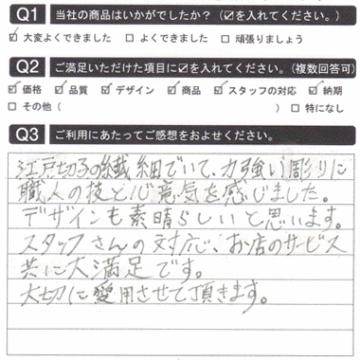 Q1 当社の商品はいかがでしたか?(☑を入れてください。)
☑ 大変よくできました □ よくできました □ 頑張りましょう
Q2 ご満足いただけた項目に☑を入れてください。(複数回答可)
☑ 価格 ☑ 品質 ☑ デザイン ☑ 商品 ☑ スタッフの対応 ☑ 納期
□ その他( ) □ 特になし
Q3 ご利用にあたってご感想をおよせください。
江戸切子の繊細でいて、力強い彫りに
職人の技と心意気を感じました。
デザインも素晴らしいと思います。
スタッフさんの対応、お店のサービス
共に大満足です。
大切に愛用させて頂きます。